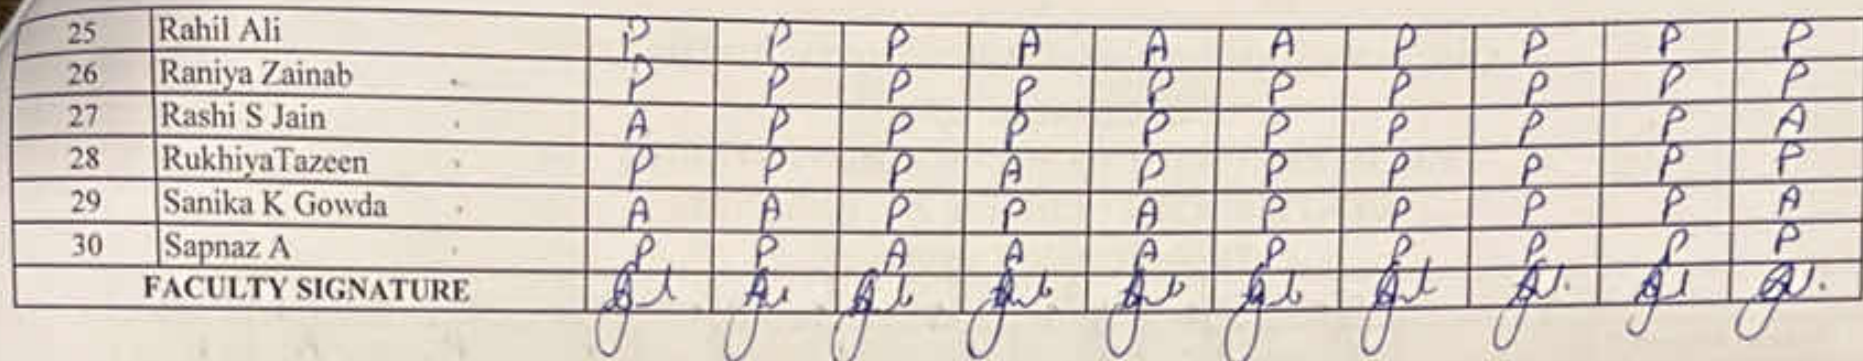 25 Rahil Ali P P P A A A P P P P
26 Raniya Zainab P P P P P P P P P P
27 Rashi S Jain A P P P P P P P P A
28 RukhiyaTazeen P P P A P P P P P P
29 Sanika K Gowda A A P P A P P P P A
30 Sapnaz A P P A A A P P P P P
FACULTY SIGNATURE